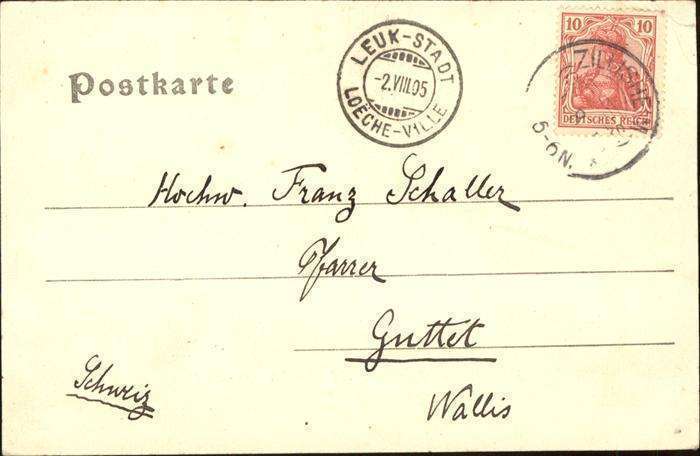 Postkarte
LEUK-STADT
-2.VIII.05
LOËCHE-VILLE
10 10
DEUTSCHES REICH
5-6N.
Hochw. Franz Schaller
Pfarrer
Guttet
Schweiz
Wallis